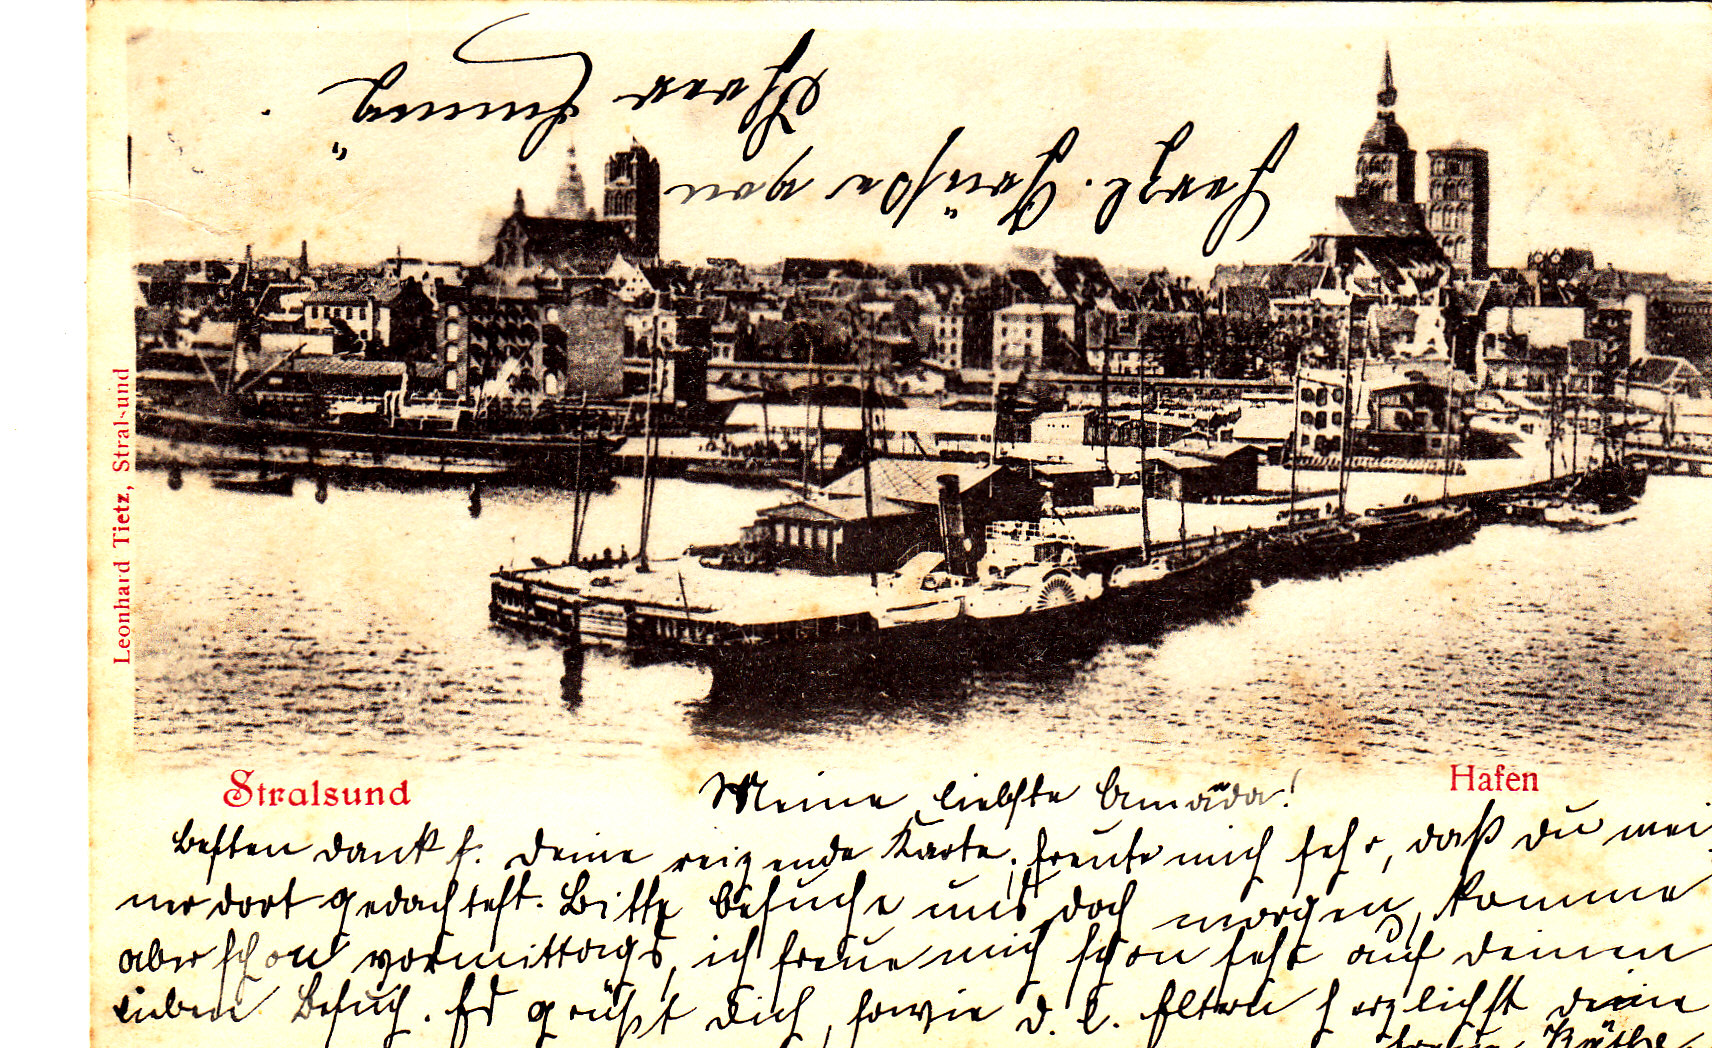 Herzl. Grüße von
Ihrer
Leonhard Tietz, Stralsund
Stralsund
Hafen
Meine liebste Amanda!
besten dank f. deine reizende Karte, freute mich sehr, daß du mei
ner dort gedachtest. Bitte besuche uns doch morgen, komme
aber schon vormittags, ich freue mich schon sehr auf deinen
lieben Besuch. Es grüßt dich, sowie d. l. Eltern herzlichst deine
Käthe